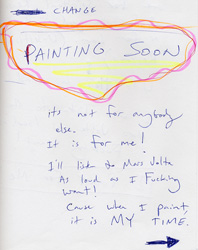 CHANGE
PAINTING SOON
its not for anybody
else.
It is for me!
I'll listen to Mars Volta
As loud as I Fucking
want!
Cause when I paint,
it is MY TIME.